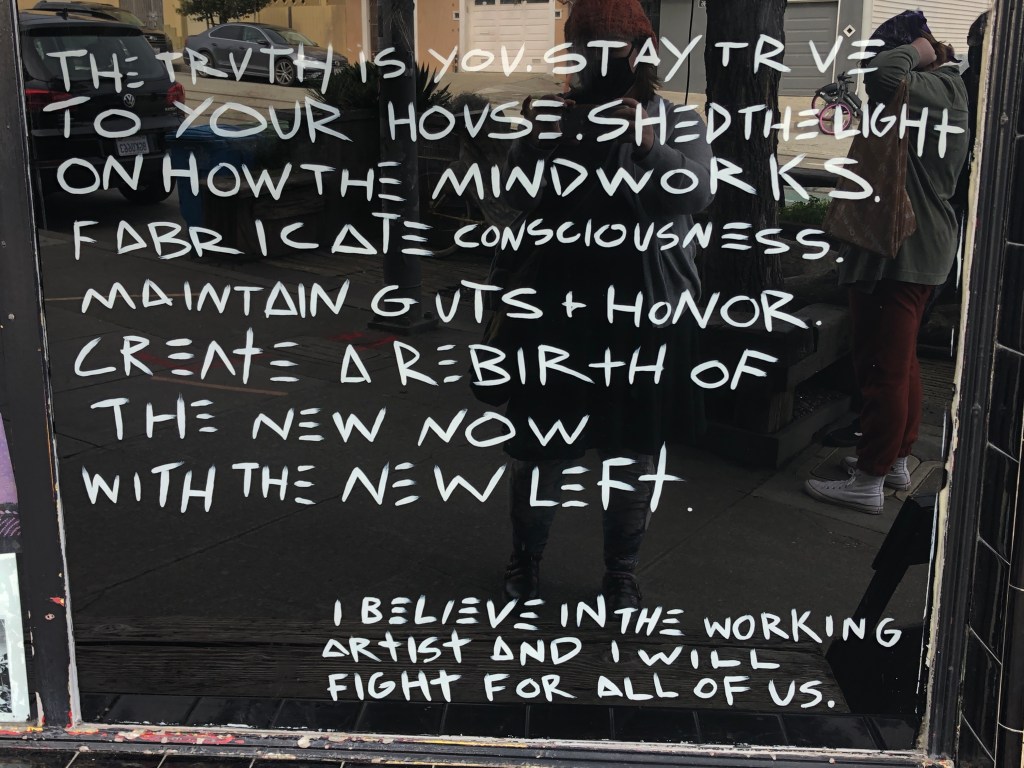 THE TRVTH IS YOV. STAY TRVE
TO YOUR HOVSE. SHED THE LIGHT
ON HOW THE MINDWORKS.
FABRICATE CONSCIOUSNESS.
MAINTAIN GUTS + HONOR.
CREATE A REBIRTH OF
THE NEW NOW
WITH THE NEW LEFT.
I BELIEVE IN THE WORKING
ARTIST AND I WILL
FIGHT FOR ALL OF US.